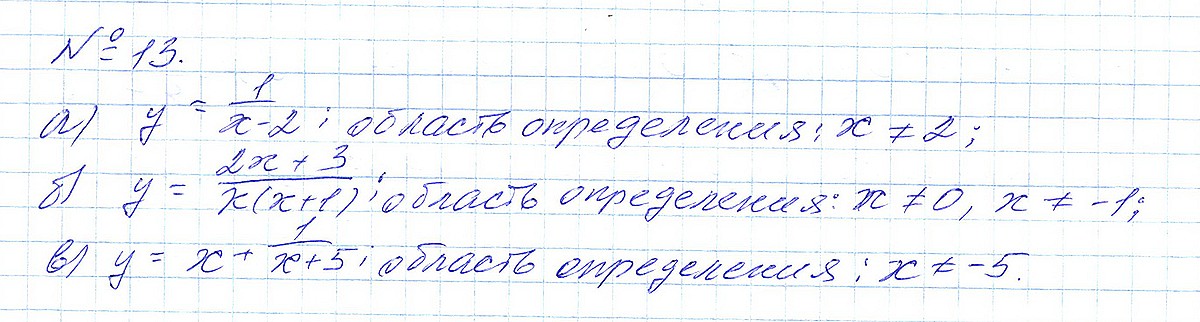 № 13.
а) y = 1/(x-2); область определения: x ≠ 2;
б) y = (2x+3)/(x(x+1)); область определения: x ≠ 0, x ≠ -1;
в) y = x + 1/(x+5); область определения: x ≠ -5.